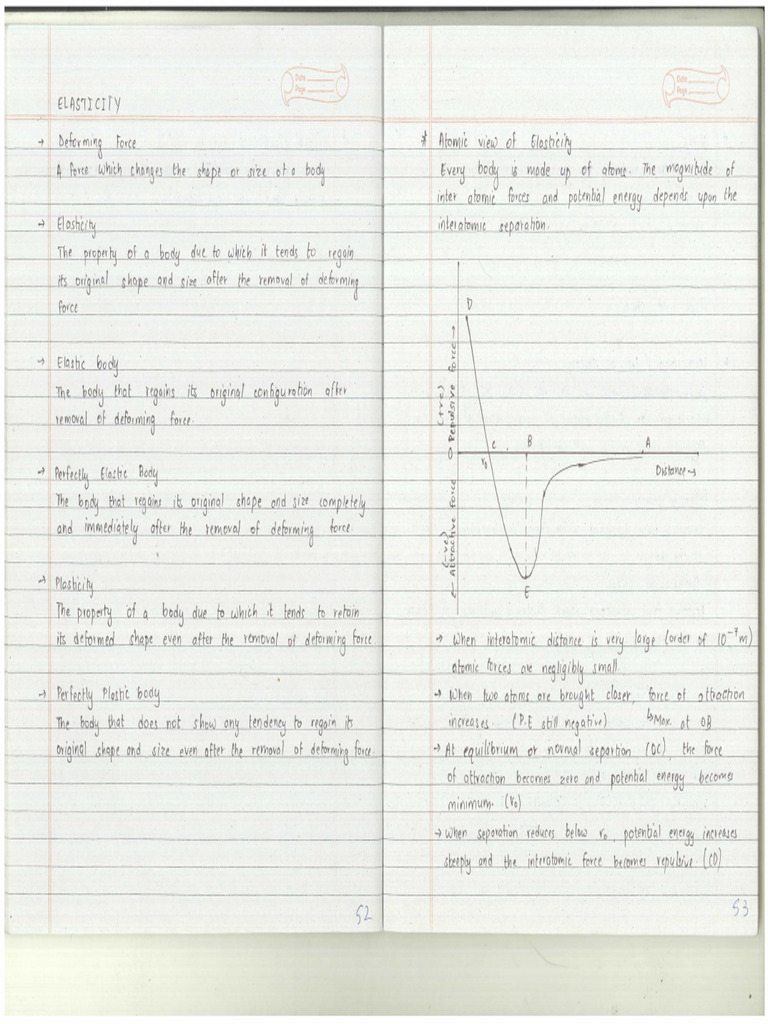 Date
Page
ELASTICITY
→ Deforming Force
A force which changes the shape or size of a body
→ Elasticity
The property of a body due to which it tends to regain
its original shape and size after the removal of deforming
force
→ Elastic body
The body that regains its original configuration after
removal of deforming force.
→ Perfectly Elastic Body
The body that regains its original shape and size completely
and immediately after the removal of deforming force.
→ Plasticity
The property of a body due to which it tends to retain
its deformed shape even after the removal of deforming force
→ Perfectly Plastic body
The body that does not show any tendency to regain its
original shape and size even after the removal of deforming force.
52
Date
Page
* Atomic view of Elasticity
Every body is made up of atoms. The magnitude of
inter atomic forces and potential energy depends upon the
interatomic separation.
D
(+ve)
Repulsive force →
O
r₀
C
B
A
Distance →
(-ve)
← Attractive force
E
→ When interatomic distance is very large (order of 10⁻⁷m)
atomic forces are negligibly small.
→ When two atoms are brought closer, force of attraction
increases. (P.E still negative) ↳Max. at OB
→ At equilibrium or normal separtion (OC) the force
of attraction becomes zero and potential energy becomes
minimum. (r₀)
→ When separation reduces below r₀, potential energy increases
steeply and the interatomic force becomes repulsive. (CD)
53